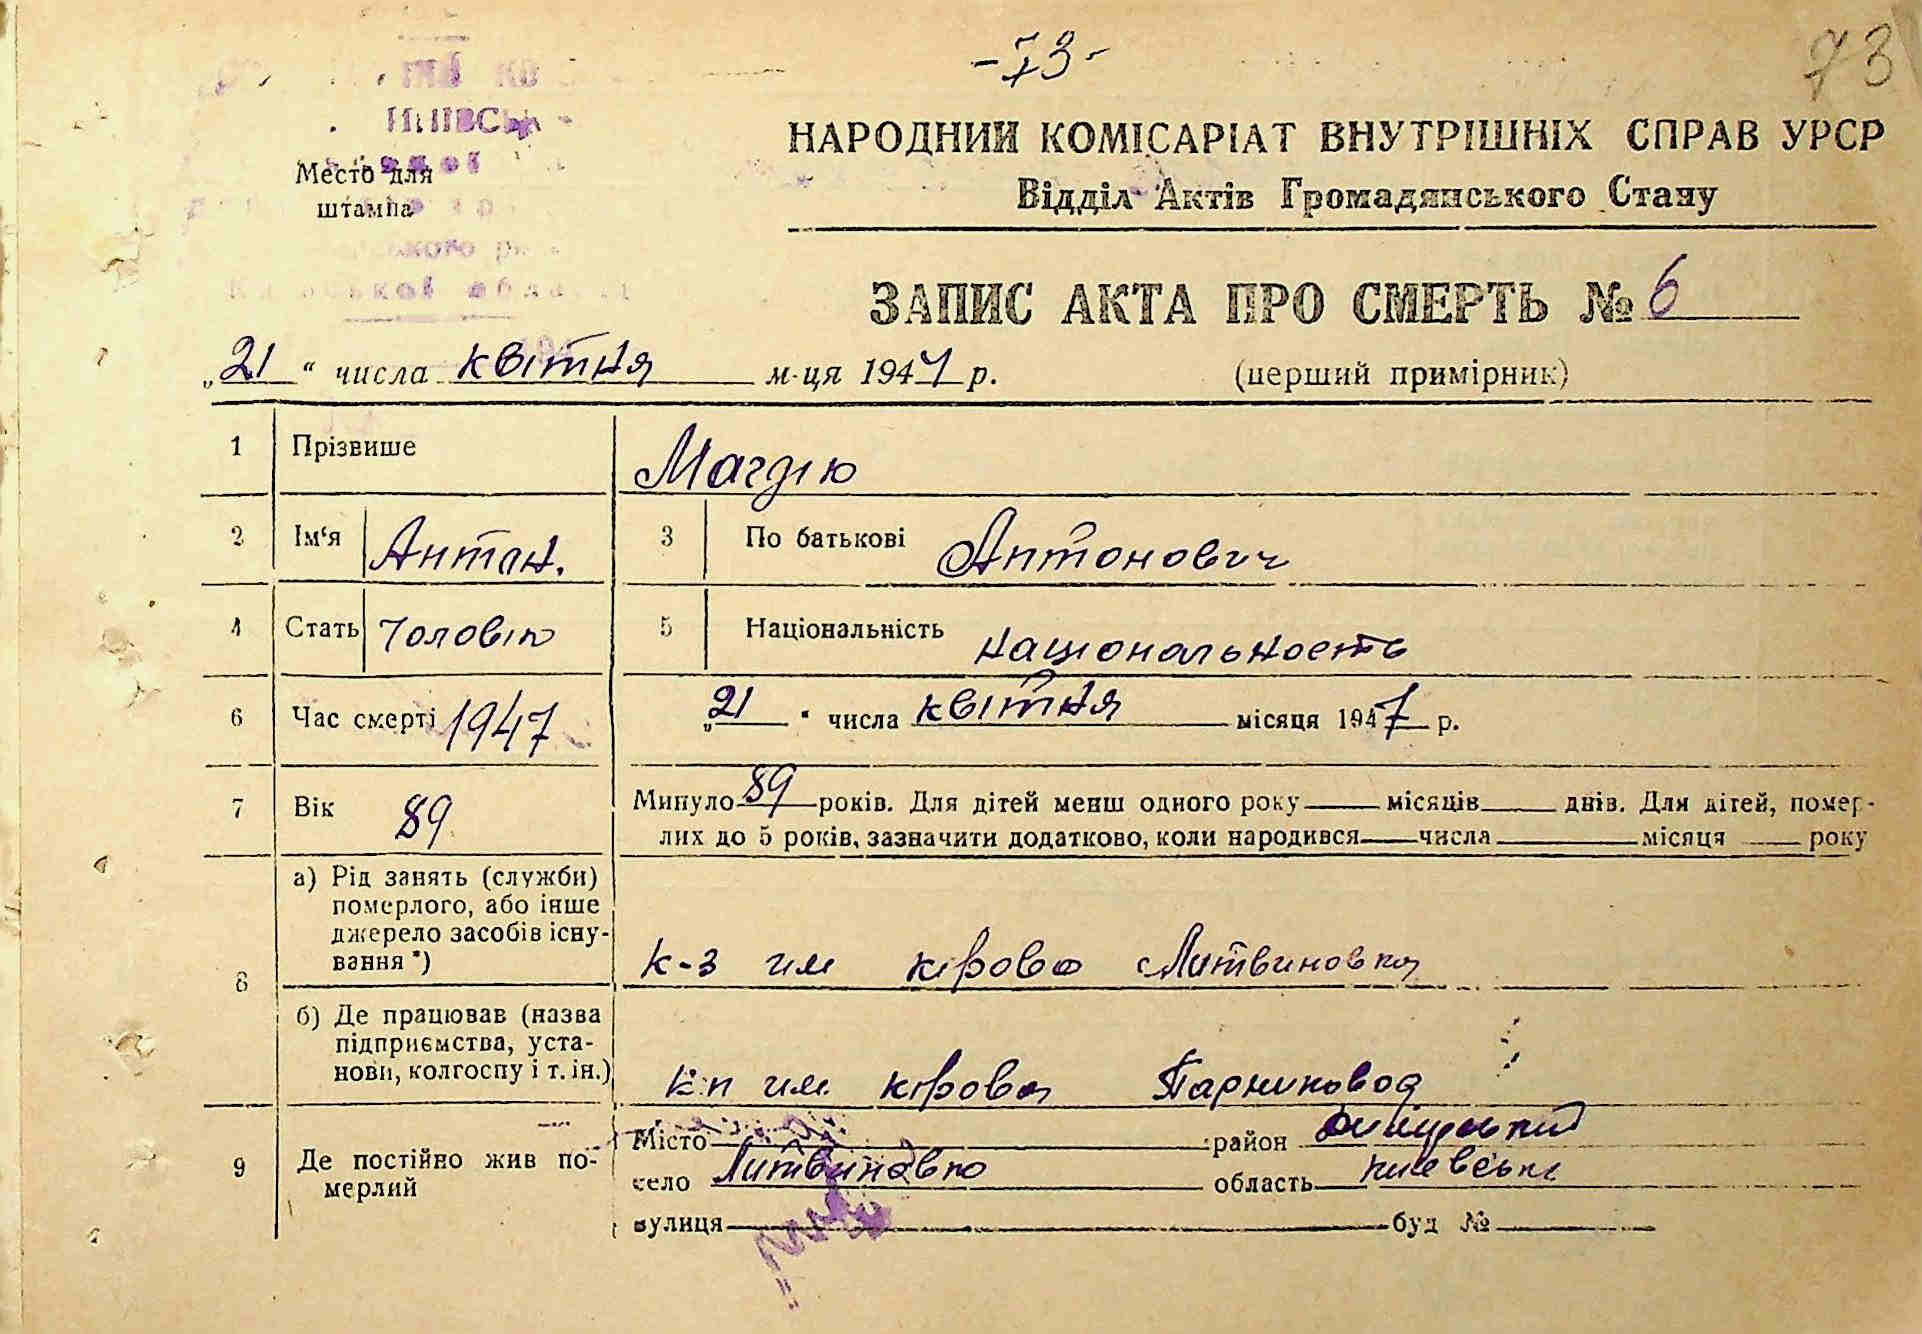 -73-
73
НАРОДНИЙ КОМІСАРІАТ ВНУТРІШНІХ СПРАВ УРСР
Место для
штампа
Відділ Актів Громадянського Стану
ЗАПИС АКТА ПРО СМЕРТЬ № 6
„21“ числа квітня м-ця 1947 р. (перший примірник)
1 Прізвише Магдію
2 Ім‘я Антон. 3 По батькові Антонович
4 Стать Чоловік 5 Національність національность
6 Час смерті 1947 „21“ числа квітня місяця 1947 р.
7 Вік 89 Минуло 89 років. Для дітей менш одного року місяців днів. Для дітей, помер-
лих до 5 років, зазначити додатково, коли народився числа місяця року
8 а) Рід занять (служби)
померлого, або інше
джерело засобів існу-
вання*) к-з им кірова Литвиновка
б) Де працював (назва
підприємства, уста-
нови, колгоспу і т. ін.) им кірова
9 Де постійно жив по-
мерлий
Місто район
село Литвиновко область
вулиця буд №